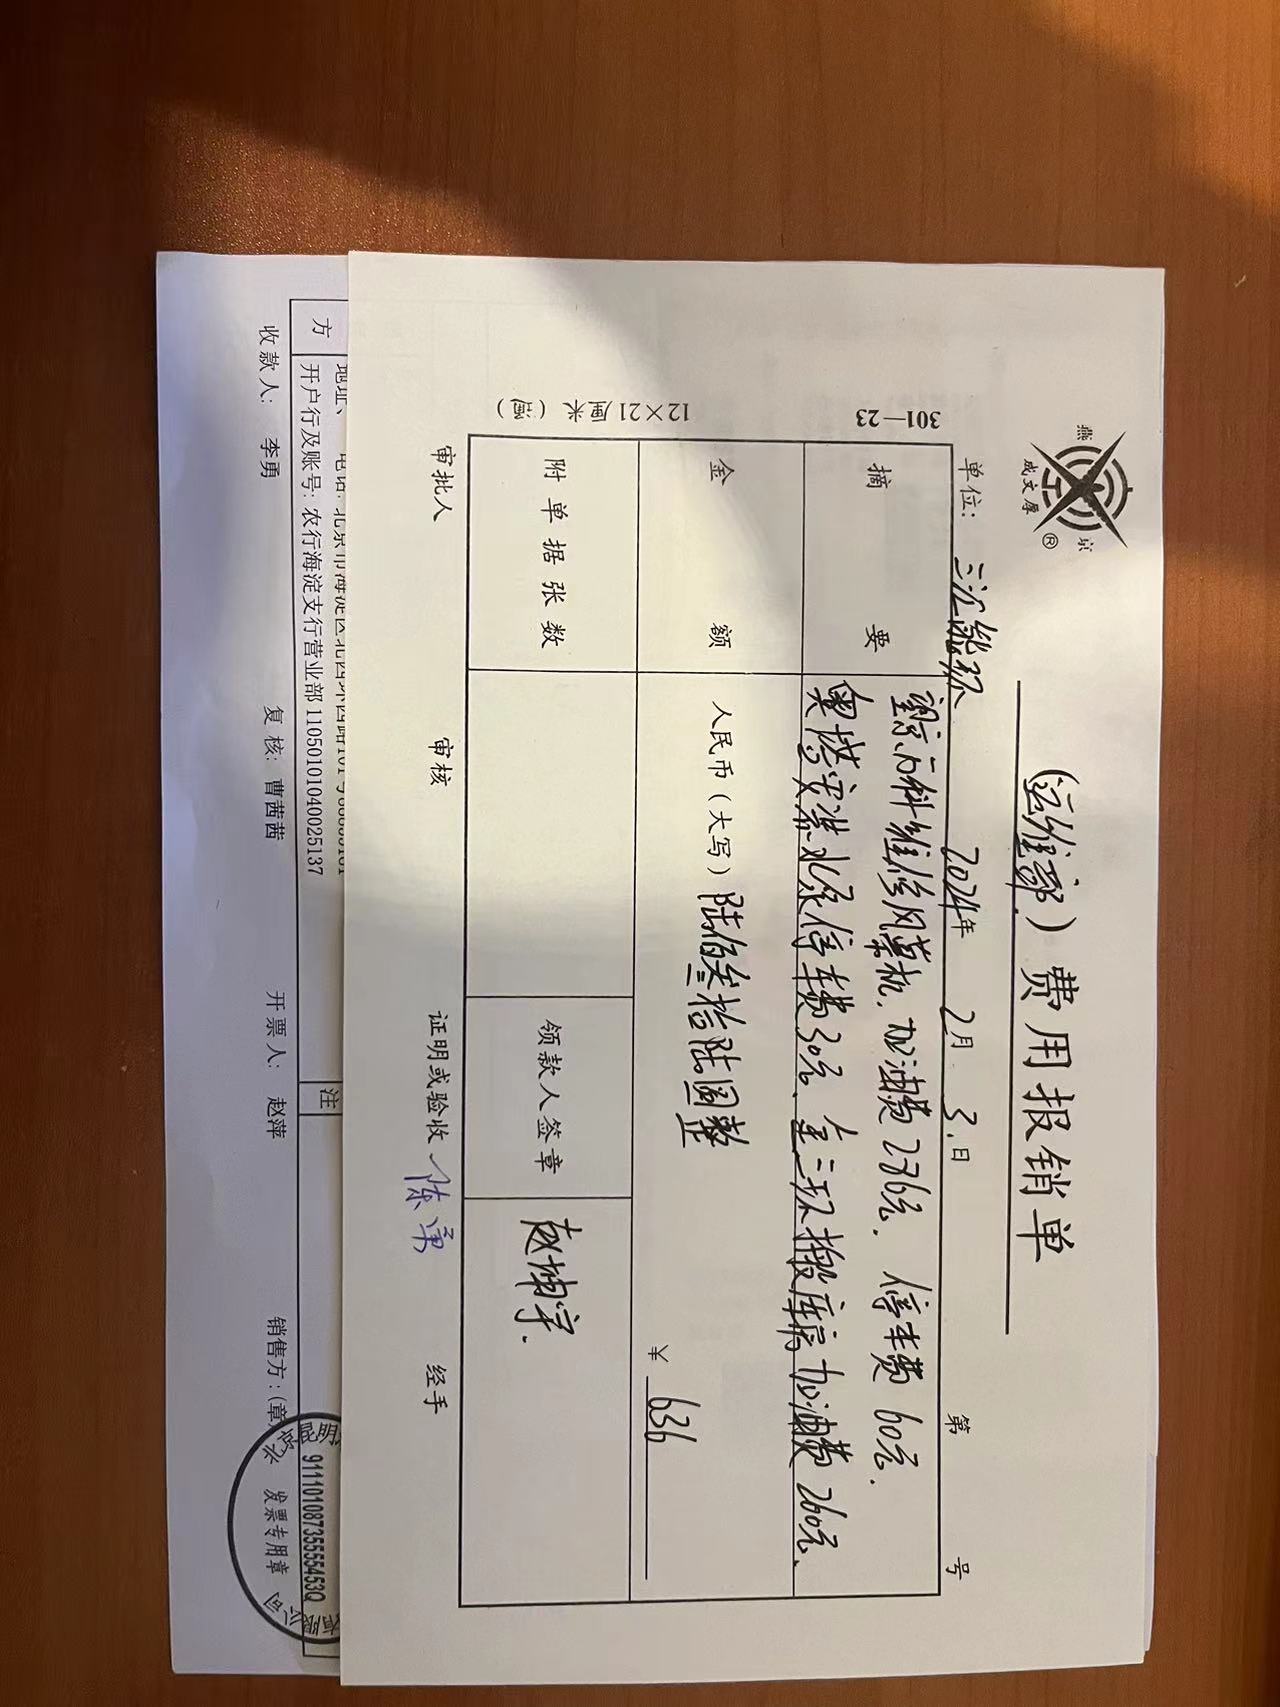 燕 京
成文厚 ®
(运维部) 费用报销单
单位: 三汇能环 2024年 2月 3日 第 号
301—23
12×21厘米(蕅)
摘 要
科维修风幕机、加油费286元、停车费60元、
奥 安 停车费30元、 三环搬库房加油费260元、
金 额
人民币(大写) 陆佰叁拾陆圆整
¥ 636
附单据张数
领款人签章 赵坤宇
审批人 审核 证明或验收 陈勇 经手
方
地址、电话: 北京市海淀区北四环西路
开户行及账号: 农行海淀支行营业部11050101040025137
注
收款人: 李勇 复核: 曹茜茜 开票人: 赵萍 销售方:(章)
911101087355555453Q
发票专用章
有限公司